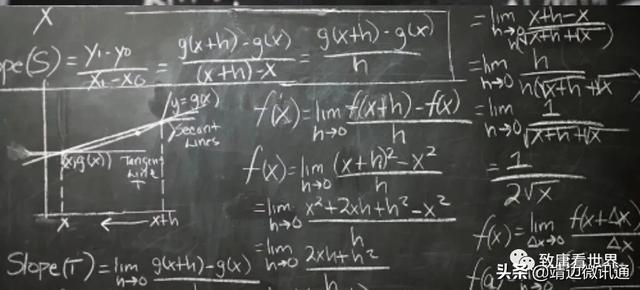 x
ope(S) = y₁-y₀/x₁-x₀ = g(x+h)-g(x)/(x+h)-x = g(x+h)-g(x)/h
y=g(x)
Secant
Lines
(x,g(x))
Tangent
Line
T
x
x+h
Slope(T) = lim h→0 g(x+h)-g(x)
f'(x) = lim h→0 f(x+h)-f(x)/h
f'(x) = lim h→0 (x+h)²-x²/h
= lim h→0 x²+2xh+h²-x²/h
= lim h→0 2xh+h²/h
= lim h→0 x+h-x
= lim h→0 h/h(√x+h+√x
= lim h→0 1/√x+h+√x
= 1/2√x
f(x) = lim Δx→0 f(x+Δx)/Δx
致康看世界
头条@靖边微讯通